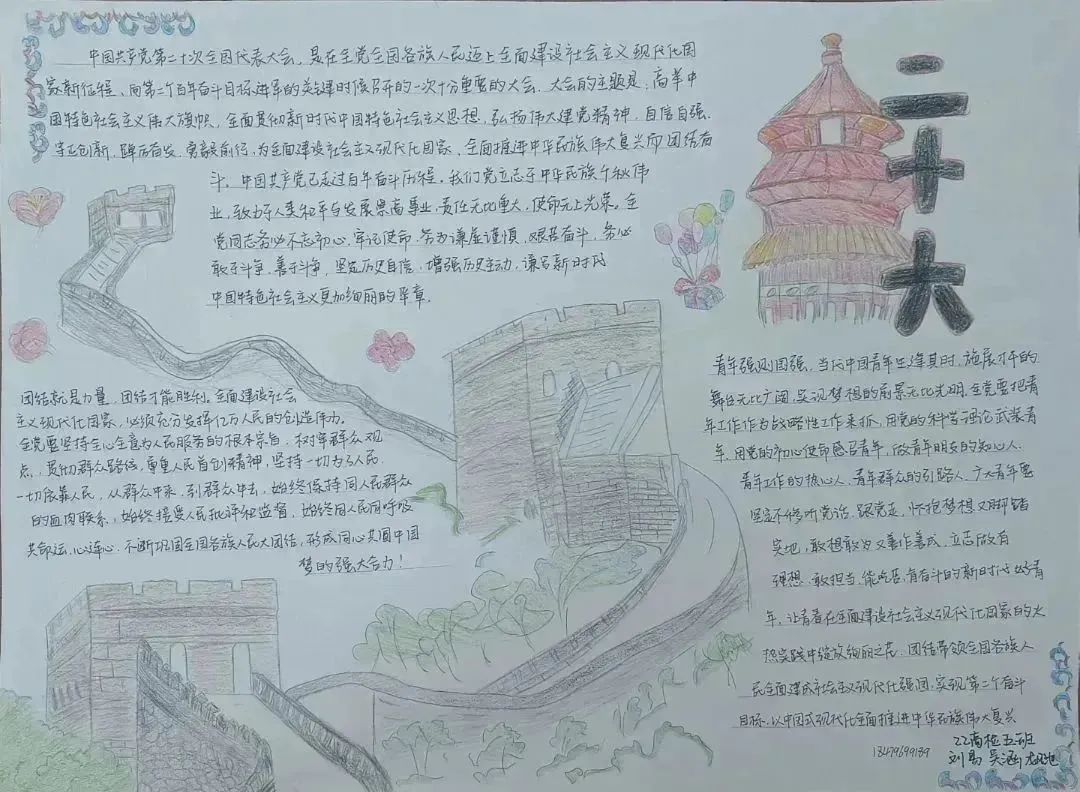 中国共产党第二十次全国代表大会，是在全党全国各族人民迈上全面建设社会主义现代化国
家新征程、向第二个百年奋斗目标进军的关键时候召开的一次十分重要的大会。大会的主题是：高举中
国特色社会主义伟大旗帜，全面贯彻新时代中国特色社会主义思想，弘扬伟大建党精神，自信自强、
守正创新，踔厉奋发、勇毅前行，为全面建设社会主义现代化国家、全面推进中华民族伟大复兴而团结奋
斗。中国共产党已走过百年奋斗历程。我们党立志于中华民族千秋伟
业，致力于人类和平与发展崇高事业，责任无比重大，使命无上光荣。全
党同志务必不忘初心、牢记使命，务必谦虚谨慎、艰苦奋斗，务必
敢于斗争、善于斗争，坚定历史自信，增强历史主动，谱写新时代
中国特色社会主义更加绚丽的华章。
二十大
团结就是力量，团结才能胜利。全面建设社会
主义现代化国家，必须充分发挥亿万人民的创造伟力。
全党要坚持全心全意为人民服务的根本宗旨，树牢群众观
点，贯彻群众路线，尊重人民首创精神，坚持一切为了人民、
一切依靠人民，从群众中来、到群众中去，始终保持同人民群众
的血肉联系，始终接受人民批评和监督，始终同人民同呼吸
共命运、心连心，不断巩固全国各族人民大团结，形成同心共圆中国
梦的强大合力！
青年强则国强，当代中国青年生逢其时，施展才干的
舞台无比广阔，实现梦想的前景无比光明。全党要把青
年工作作为战略性工作来抓，用党的科学理论武装青
年，用党的初心使命感召青年，做青年朋友的知心人、
青年工作的热心人、青年群众的引路人。广大青年要
坚定不移听党话、跟党走，怀抱梦想又脚踏
实地，敢想敢为又善作善成，立志做有
理想、敢担当、能吃苦、肯奋斗的新时代好青
年，让青春在全面建设社会主义现代化国家的火
热实践中绽放绚丽之花。团结带领全国各族人
民全面建成社会主义现代化强国、实现第二个奋斗
目标，以中国式现代化全面推进中华民族伟大复兴
22高检五班
18479699189
刘易 吴涵